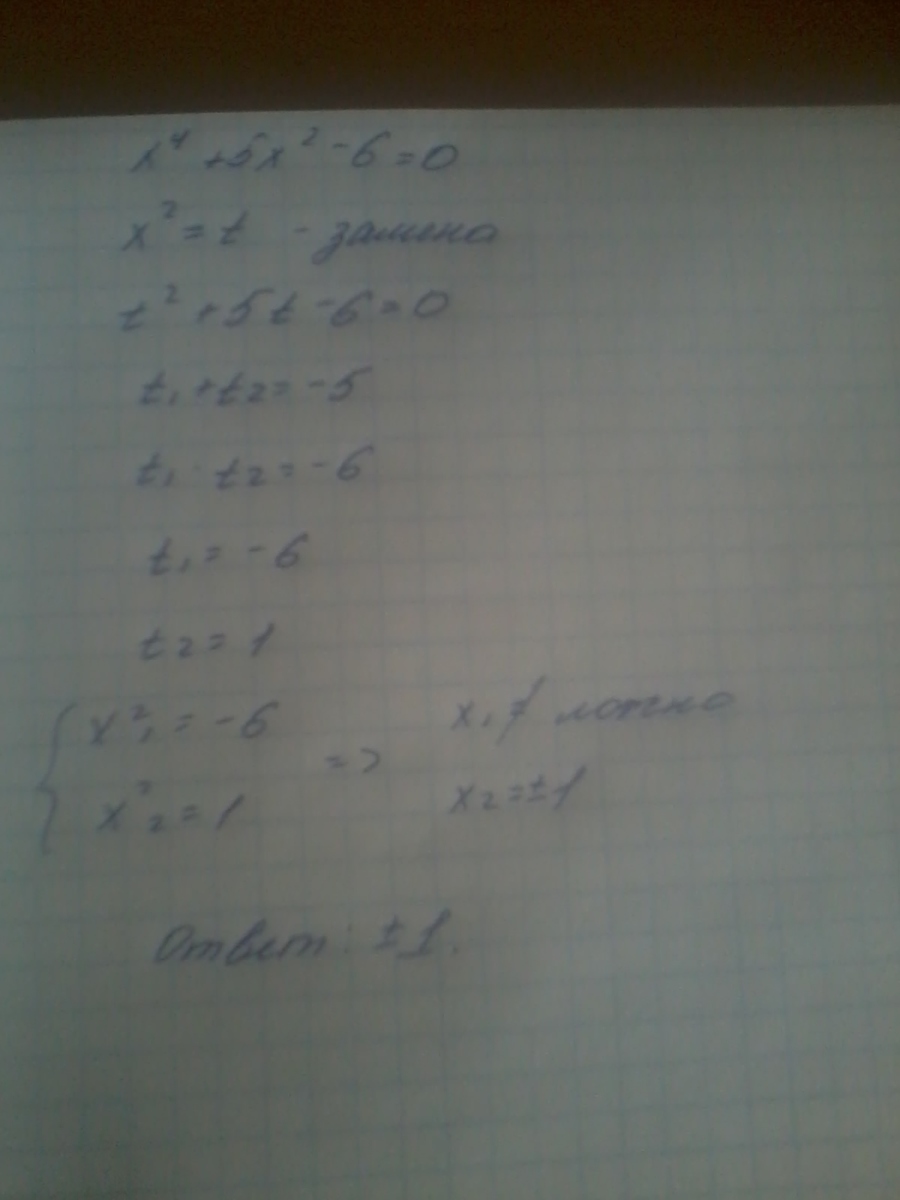 x⁴ + 5x² - 6 = 0
x² = t - замена
t² + 5t - 6 = 0
t₁ + t₂ = -5
t₁ · t₂ = -6
t₁ = -6
t₂ = 1
{ x²₁ = -6 => x₁ ≠ ложно
x²₂ = 1 x₂ = ±1
Ответ: ±1.